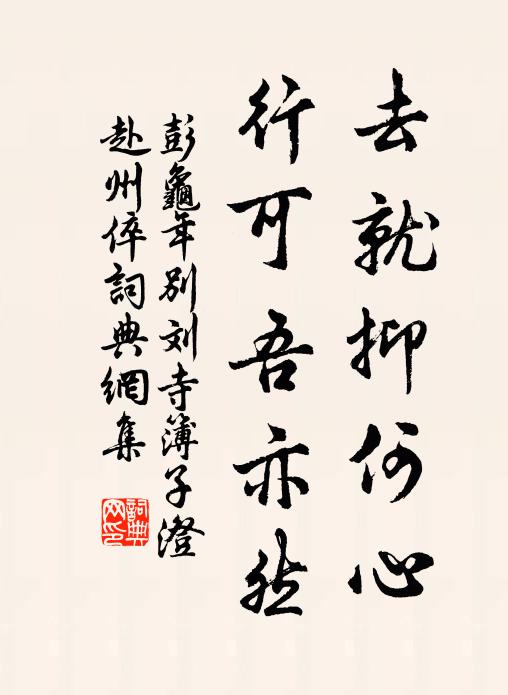 去就抑何心
行可吾亦然
彭龜年别刘寺簿子澄
赴州倅詞典網集
詞典
网印